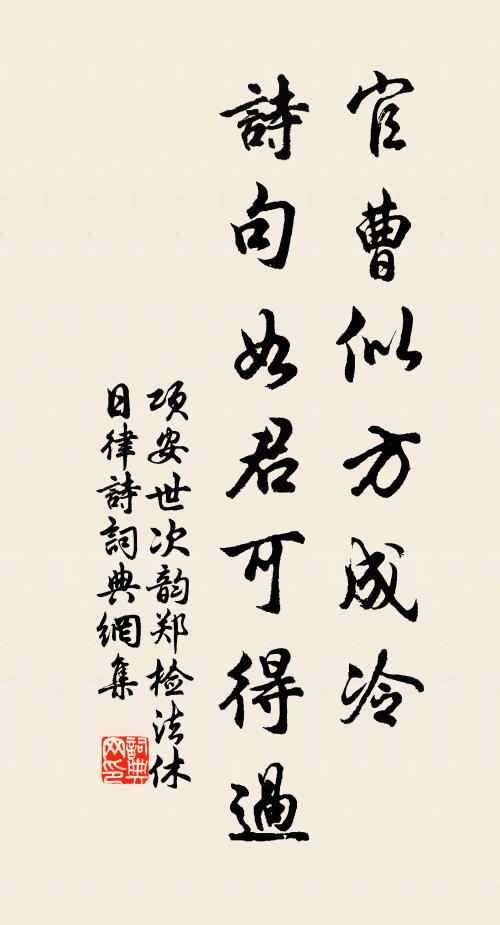 官曹似方成冷
詩句如君可得過
项安世次韵郑检法休
日律詩詞典網集
詞典
网印